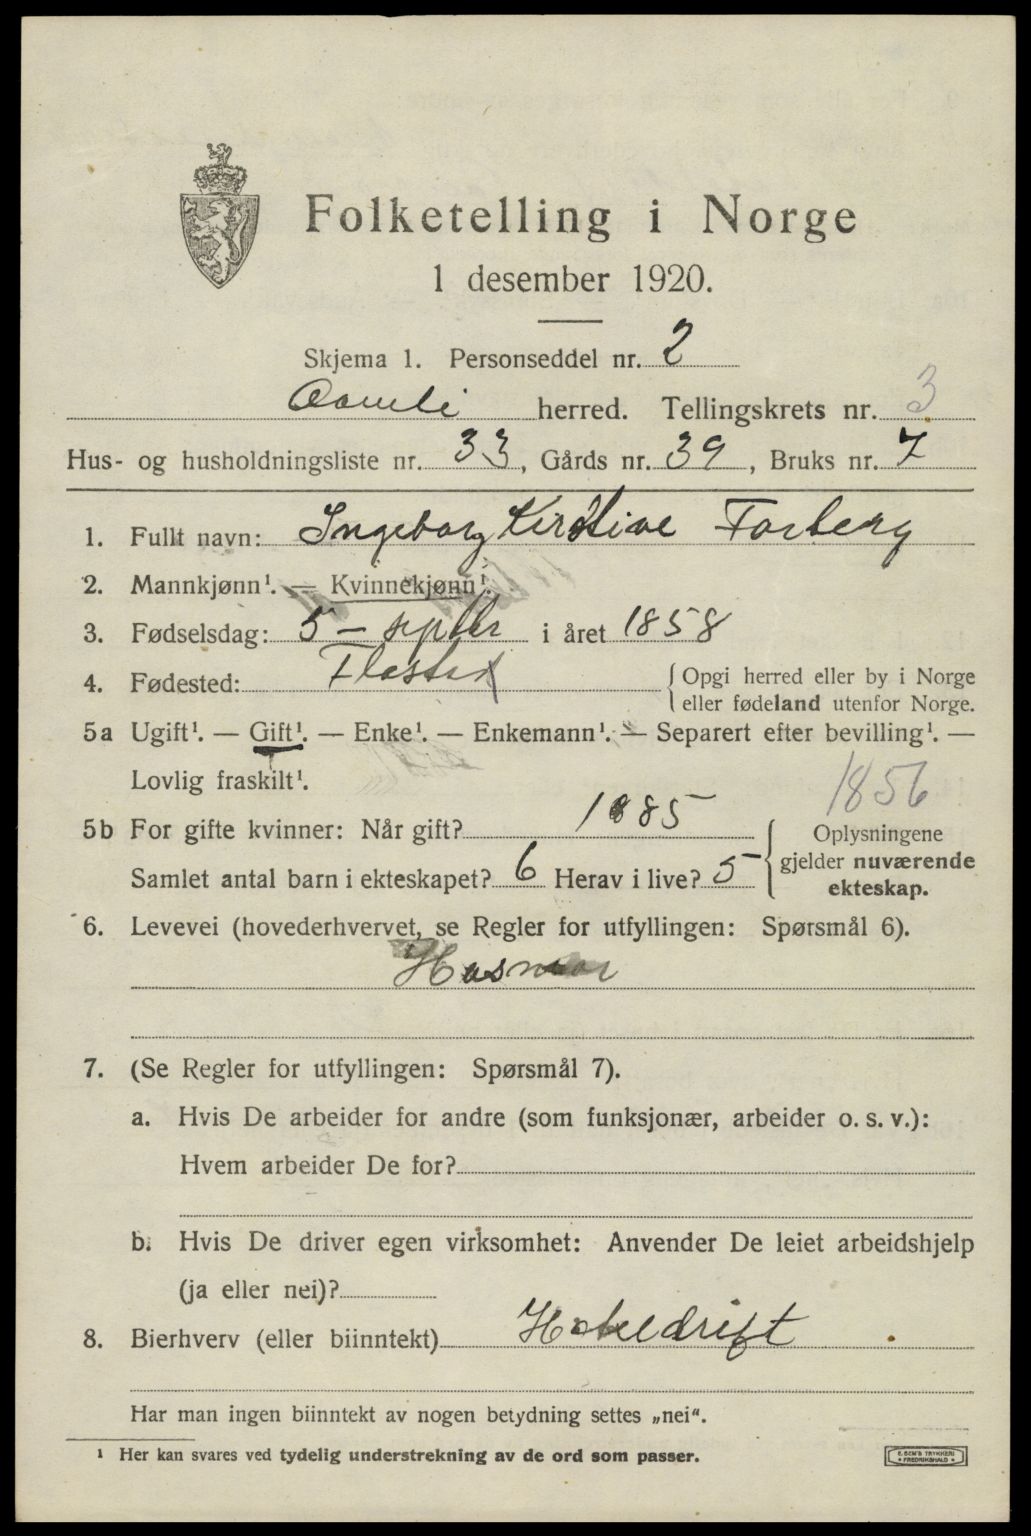 Folketelling i Norge
1 desember 1920.
Skjema 1. Personseddel nr. 2
Aamli herred. Tellingskrets nr. 3
Hus- og husholdningsliste nr. 33, Gårds nr. 39, Bruks nr. 7
1. Fullt navn: Ingeborg Kirstine Forberg
2. Mannkjønn¹. — Kvinnekjønn¹.
3. Fødselsdag: 5 – septbr i året 1858
4. Fødested: Flastad {Opgi herred eller by i Norge
eller fødeland utenfor Norge.
5a Ugift¹. — Gift¹. — Enke¹. — Enkemann¹. — Separert efter bevilling¹. —
Lovlig fraskilt¹.
1856
5b For gifte kvinner: Når gift? 1885 Oplysningene
gjelder nuværende
Samlet antal barn i ekteskapet? 6 Herav i live? 5
ekteskap.
6. Levevei (hovederhvervet, se Regler for utfyllingen: Spørsmål 6).
Husmor
7. (Se Regler for utfyllingen: Spørsmål 7).
a. Hvis De arbeider for andre (som funksjonær, arbeider o. s. v.):
Hvem arbeider De for?
b. Hvis De driver egen virksomhet: Anvender De leiet arbeidshjelp
(ja eller nei)?
8. Bierhverv (eller biinntekt) Hoteldrift
Har man ingen biinntekt av nogen betydning settes „nei“.
¹ Her kan svares ved tydelig understrekning av de ord som passer.
E. SEM'S TRYKKERI
• FREDRIKSHALD •